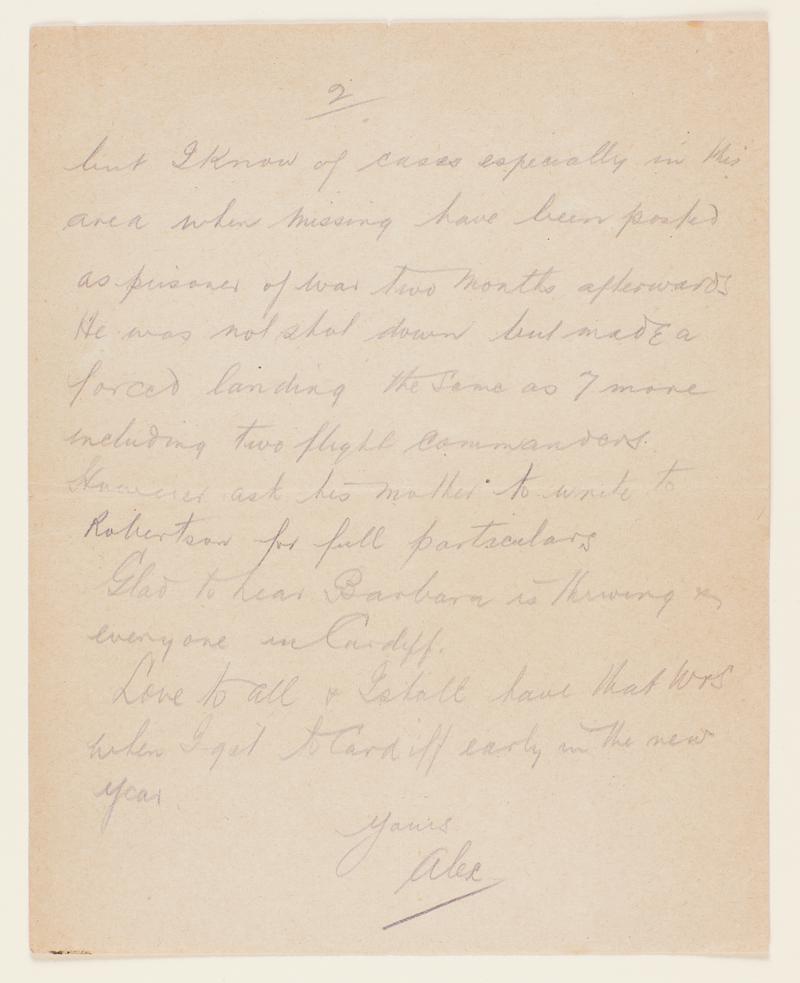 2
but I know of cases especially in this
area when missing have been posted
as prisoner of war two months afterwards
He was not shot down but made a
forced landing the same as 7 more
including two flight commanders.
However ask his mother to write to
Robertson for full particulars
Glad to hear Barbara is thriving &
everyone in Cardiff.
Love to all & I shall have that
when I get to Cardiff early in the new
year.
Yours
Alex